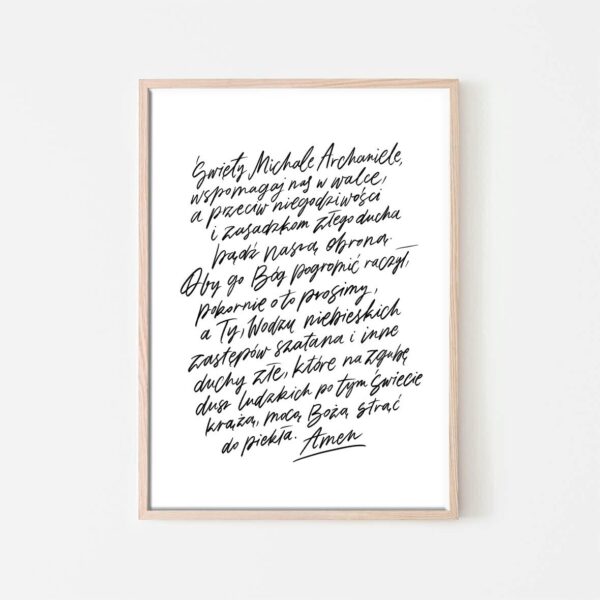 Święty Michale Archaniele,
wspomagaj nas w walce,
a przeciw niegodziwości
i zasadzkom złego ducha
bądź naszą obroną.
Oby go Bóg pogromić raczył,
pokornie o to prosimy,
a Ty, Wodzu niebieskich
zastępów szatana i inne
duchy złe, które na zgubę
dusz ludzkich po tym świecie
krążą, mocą Bożą strąć
do piekła. Amen